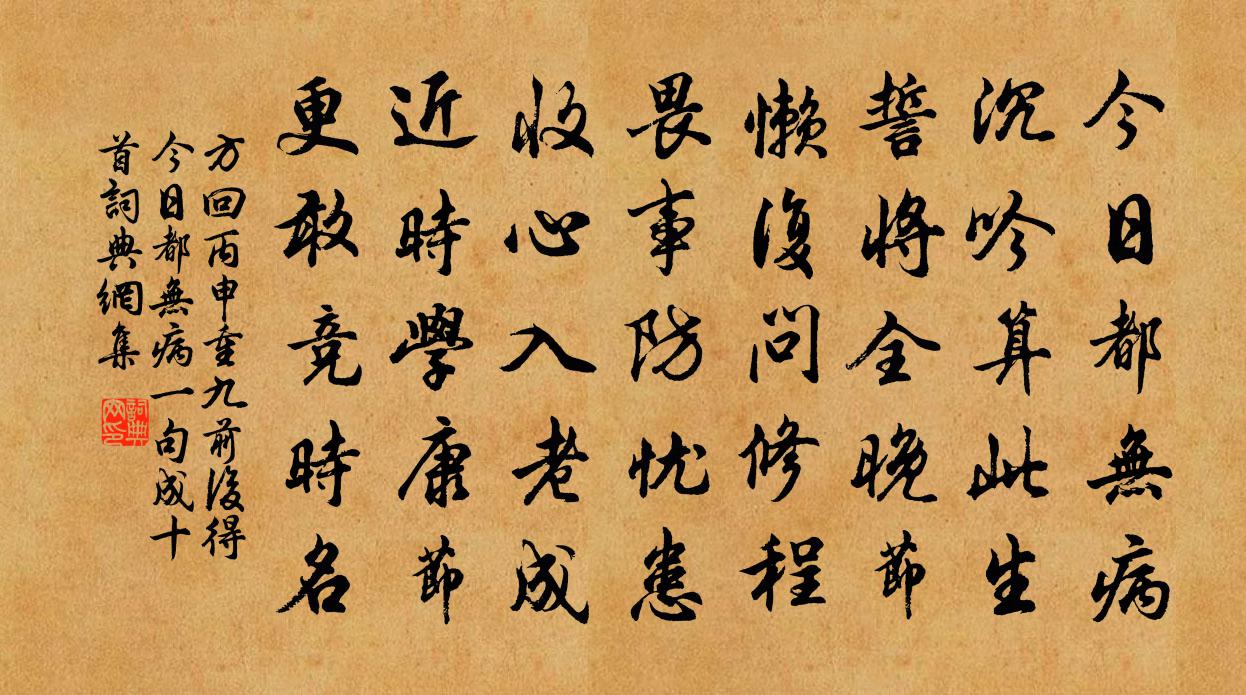 今日都無病
沉吟算此生
誓將全晚節
懶復問修程
畏事防忧患
收心入老成
近時學康節
更敢竞時名
方回丙申重九前後得
今日都無病一句成十
首詞典網集
詞典
网印